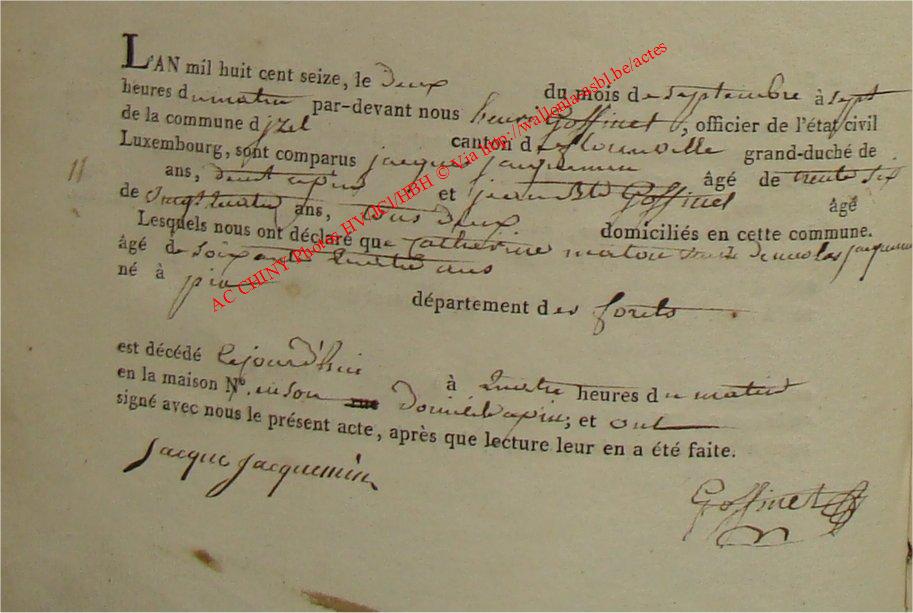 L'AN mil huit cent seize, le Deux du mois de septembre à sept
heures du matin par-devant nous henri Goffinet, officier de l'état civil
de la commune d jzel canton de florenville grand-duché de
Luxembourg, sont comparus jacque jacquemin âgé de trente six
11
ans, et jean Bte Goffinet âgé
de ans, tous deux domiciliés en cette commune.
Lesquels nous ont déclaré que Catherine maton de nicolas jacquemin
âgé de soixante ans
né à pin département des forets
est décédé cejourd'hui à quatre heures du matin
en la maison N°. en son rue Domicile a pin; et ont
signé avec nous le présent acte, après que lecture leur en a été faite.
Jacque Jacquemin
Goffinet
AC CHINY Photos HV/JCI/HBH © Via http://walloniansbl.be/actes